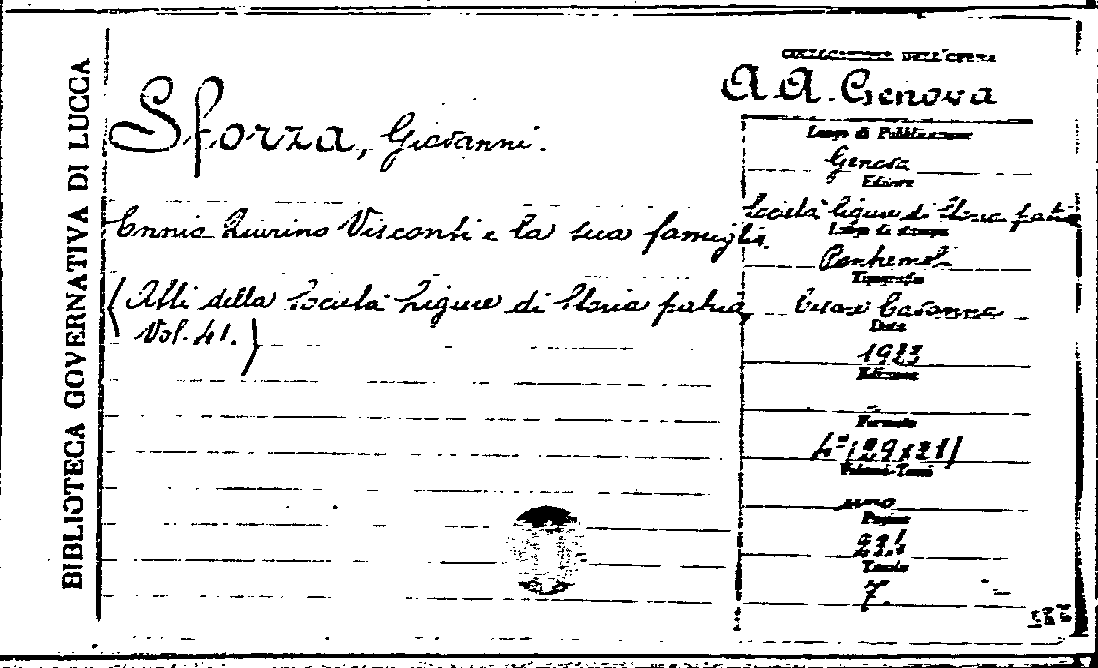 BIBLIOTECA GOVERNATIVA DI LUCCA
Sforza, Giovanni.
Ennio Quirino Visconti e la sua famiglia.
(Atti della Società Ligure di Storia patria,
Vol. 41.)
COLLOCAZIONE DELL'OPERA
A.A. Genova
Luogo di Pubblicazione
Genova
Editore
Società Ligure di Storia patria
Luogo di stampa
Tipografia
Data
1923
Edizione
Formato
4°(29x21)
Volumi-Tomi
uno
Pagine
221
Tavole
7.